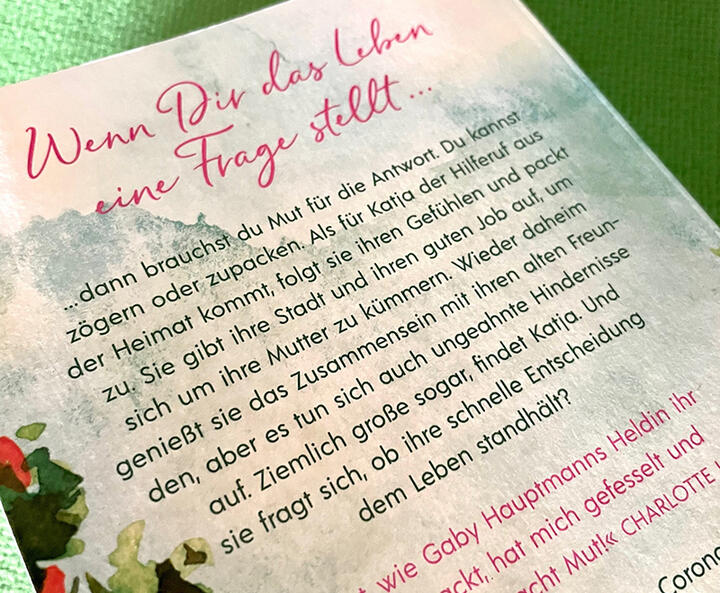 Wenn Dir das Leben
eine Frage stellt ...
...dann brauchst du Mut für die Antwort. Du kannst
zögern oder zupacken. Als für Katja der Hilferuf aus
der Heimat kommt, folgt sie ihren Gefühlen und packt
zu. Sie gibt ihre Stadt und ihren guten Job auf, um
sich um ihre Mutter zu kümmern. Wieder daheim
genießt sie das Zusammensein mit ihren alten Freun-
den, aber es tun sich auch ungeahnte Hindernisse
auf. Ziemlich große sogar, findet Katja. Und
sie fragt sich, ob ihre schnelle Entscheidung
dem Leben standhält?
wie Gaby Hauptmanns Heldin ihr
hat mich gefesselt und
Mut!« CHARLOTTE